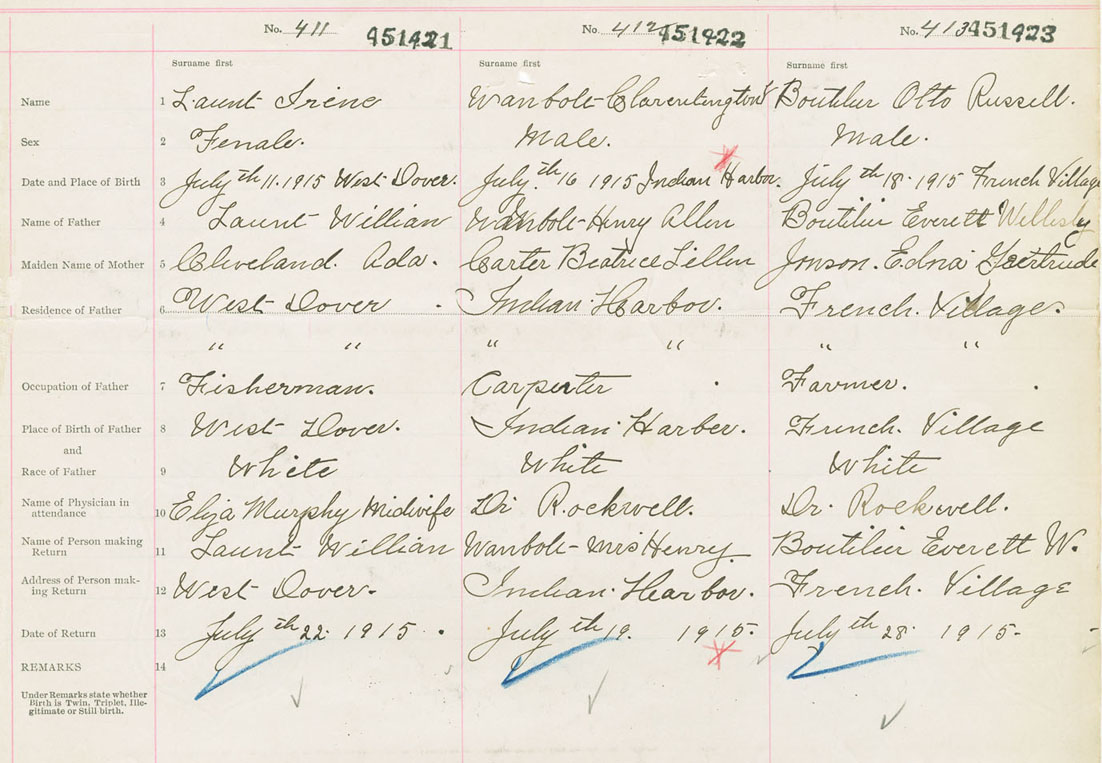 No. 411 451421 No. 412 451422 No. 413 451423
Surname first Surname first Surname first
Name 1 Launt Irene Wanbolt Clarentington Boutilier Otto Russell.
Sex 2 Female. Male. Male.
Date and Place of Birth 3 July th 11. 1915 West Dover. July th 16 1915 Indian Harbor. July th 18. 1915 French Village
Name of Father 4 Launt William Wanbolt-Henry Allen Boutilier Everett Wellesly
Maiden Name of Mother 5 Cleveland. Ada. Carter Beatrice Lillen Jonson. Edna Geertrude
Residence of Father 6 West Dover. Indian Harbor. French. Village.
" " " " " "
Occupation of Father 7 Fisherman. Carpenter. Farmer.
Place of Birth of Father 8 West Dover. Indian Harber. French. Village
and
Race of Father 9 White White White
Name of Physician in
attendance 10 Eliza Murphy Midwife Dr Rockwell. Dr. Rockwell.
Name of Person making
Return 11 Launt William Wanbolt-Mrs Henry Boutilier Everett W.
Address of Person mak-
ing Return 12 West Dover. Indian Harbor. French. Village
Date of Return 13 July th 22. 1915. July th 19. 1915. July th 28. 1915.
REMARKS 14
Under Remarks state whether
Birth is Twin, Triplet, Ille-
gitimate or Still birth.